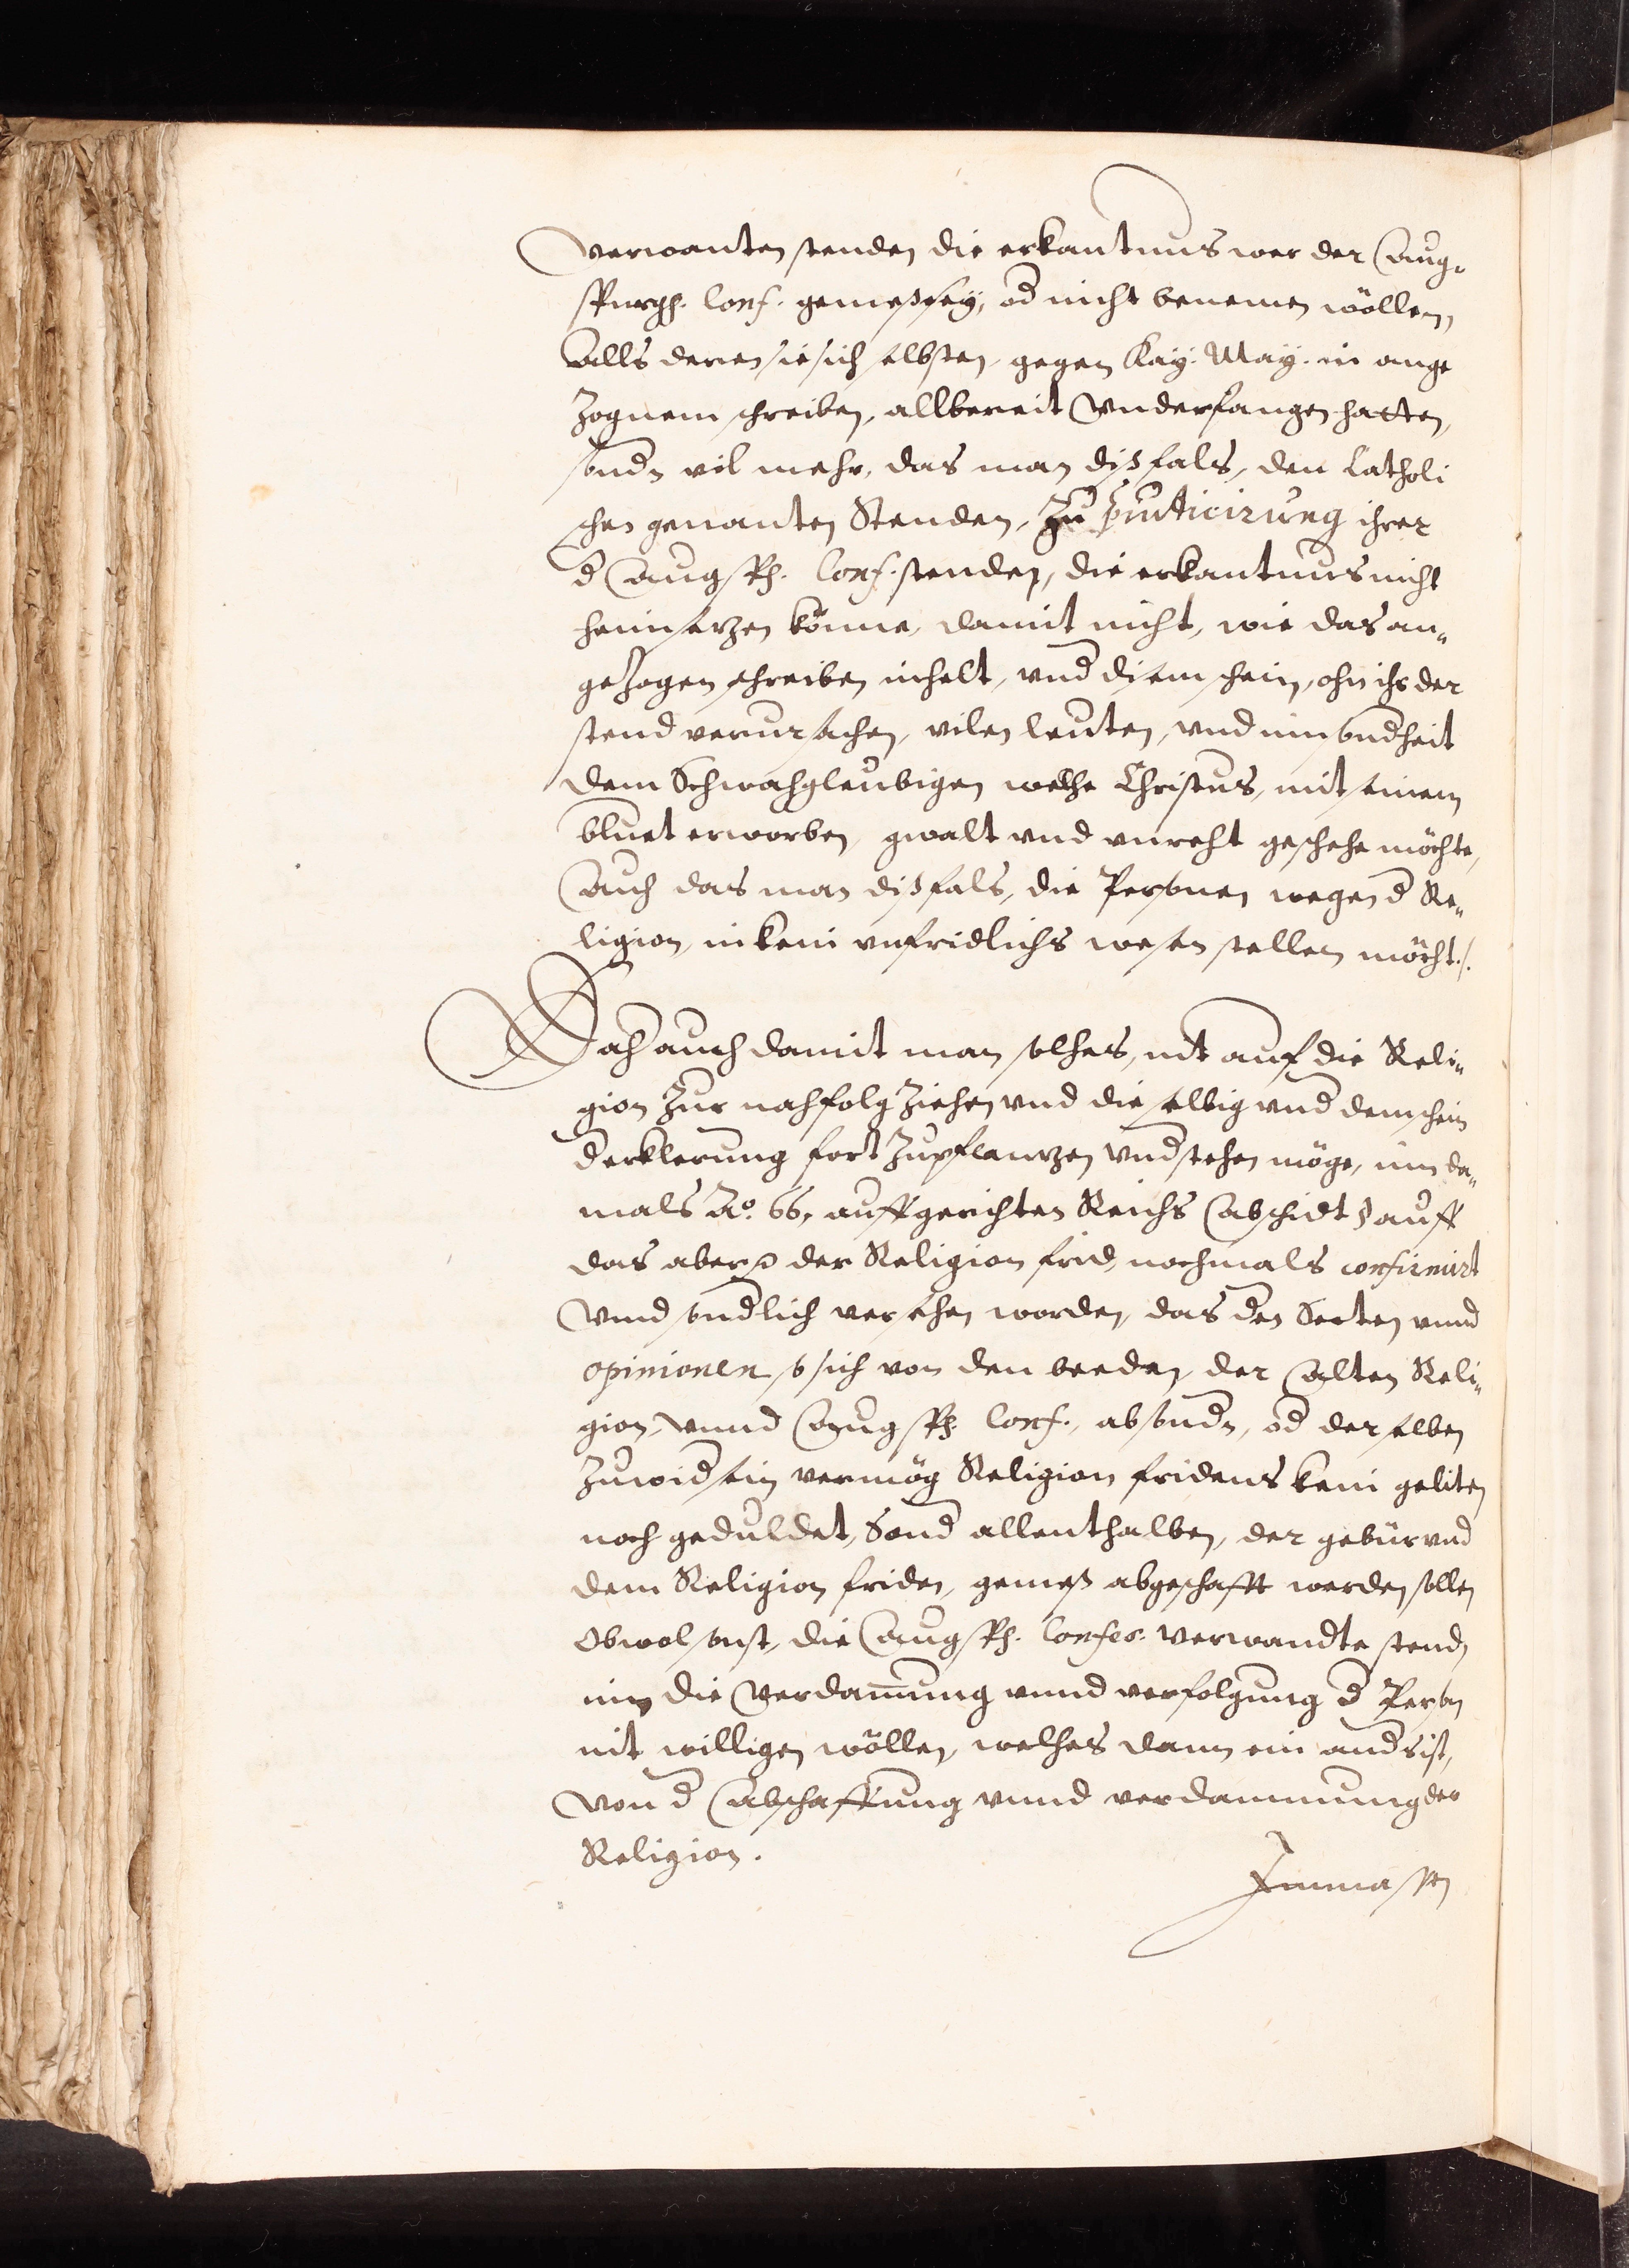 verwanten stenden die erkantnus wer der Aug-
spurgh. Conf. gemeß sey, od nicht benemen wöllen,
Alls deren sie sich selbsten, gegen Kay: May: in ange
zognem schreiben, allbereit vnderfangen hatten,
sondn vil mehr, das man dißfals, den Catholi
schen genanten Stenden, zu ihrer
d Augsp. Conf. stenden, die erkantnus nicht
heimsetzen könne, damit nicht, wie das an„
gezogen schreiben inhelt, vnd disem schein, ohn ihr der
stend verursachen, vilen leuten, vnd inn sondheit
dem Schwachgleubigen welche Christus, mit seinem
bluet erworben, gwalt vnd vnrecht geschehe möchte,
Auch das man dißfals, die Personen wegen d Re„
ligion, in kein vnfridlichs wesen stellen möcht./.
Doch auch damit man solches, nit auf die Reli„
gion zur nachfolg ziehen vnd dieselbig vnd dem schein
d erklerung fort zupflantzen vndstehen möge, inn da„
mals Ao. 66. auffgerichten Reichs Abschidt § auff
das aber der Religion frid, nochmals confirmirt
Vnnd sondlich versehen worden, das den Secten vnnd
opinionen, so sich von den beeden, der Alten Reli„
gion, vnnd Augsp. Conf., absondn, od derselben
zuwid sein vermög Religion fridens kein geliten
noch geduldet, Sond allenthalben, der gebür vnd
dem Religion friden, gemeß abgeschafft werden sollen
Obwol sonst, die Augsp. Confes. verwandte stend,
inn die Verdamung vnnd verfolgung d Person
nit willigen wöllen, welches dann ein anders ist,
Von d Abschaffung vnnd verdammung der
Religion.
Inmassen